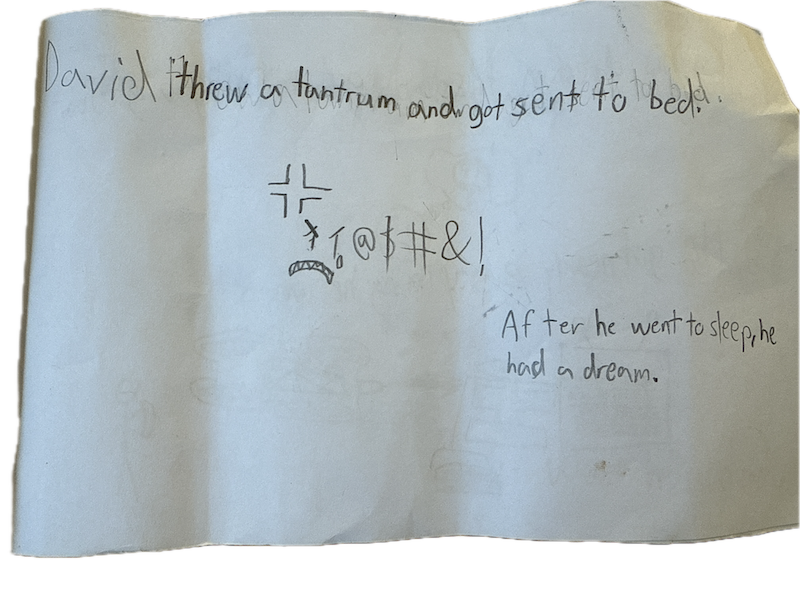 David threw a tantrum and got sent to bed.
!@$#&!
After he went to sleep, he
had a dream.